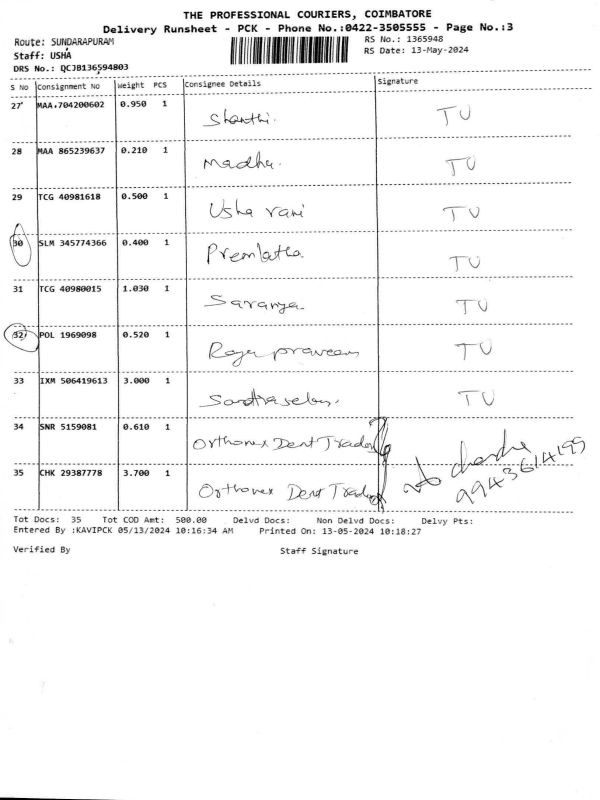 THE PROFESSIONAL COURIERS, COIMBATORE
Delivery Runsheet - PCK - Phone No.:0422-3505555 - Page No.:3
Route: SUNDARAPURAM
RS No.: 1365948
Staff: USHA
RS Date: 13-May-2024
DRS No.: QCJB136594803
S No Consignment No Weight PCS Consignee Details Signature
27 MAA 704200602 0.950 1 Shanthi. TU
28 MAA 865239637 0.210 1 Madhu. TU
29 TCG 40981618 0.500 1 Usha rani TU
30 SLM 345774366 0.400 1 Premlatha TU
31 TCG 40980015 1.030 1 Saranya. TU
32 POL 1969098 0.520 1 Raja praveen TU
33 IXM 506419613 3.000 1 TU
34 SNR 5159081 0.610 1 Orthonex Dent Trader
35 CHK 29387778 3.700 1 Orthonex Dent Trader
9943614199
Tot Docs: 35 Tot COD Amt: 500.00 Delvd Docs: Non Delvd Docs: Delvy Pts:
Entered By :KAVIPCK 05/13/2024 10:16:34 AM Printed On: 13-05-2024 10:18:27
Verified By Staff Signature